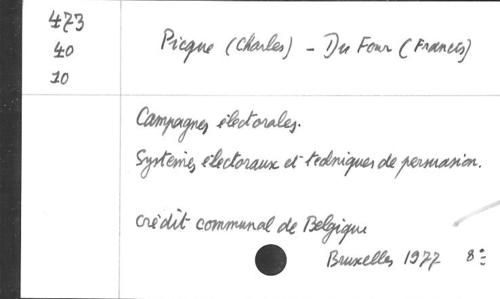 473
40
10
Picque (Charles) - Du Four (Francis)
Campagnes électorales.
Systèmes électoraux et techniques de persuasion.
Crédit communal de Belgique
Bruxelles 1977 8°